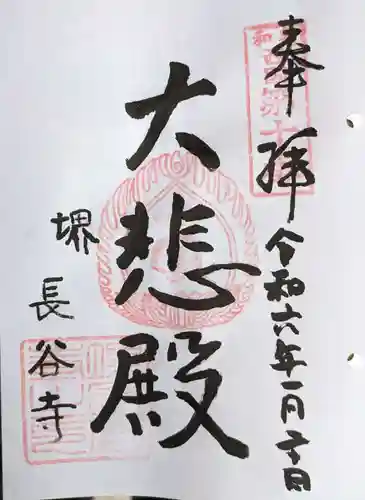 奉拝
令和六年一月二十日
大悲殿
堺
長谷寺